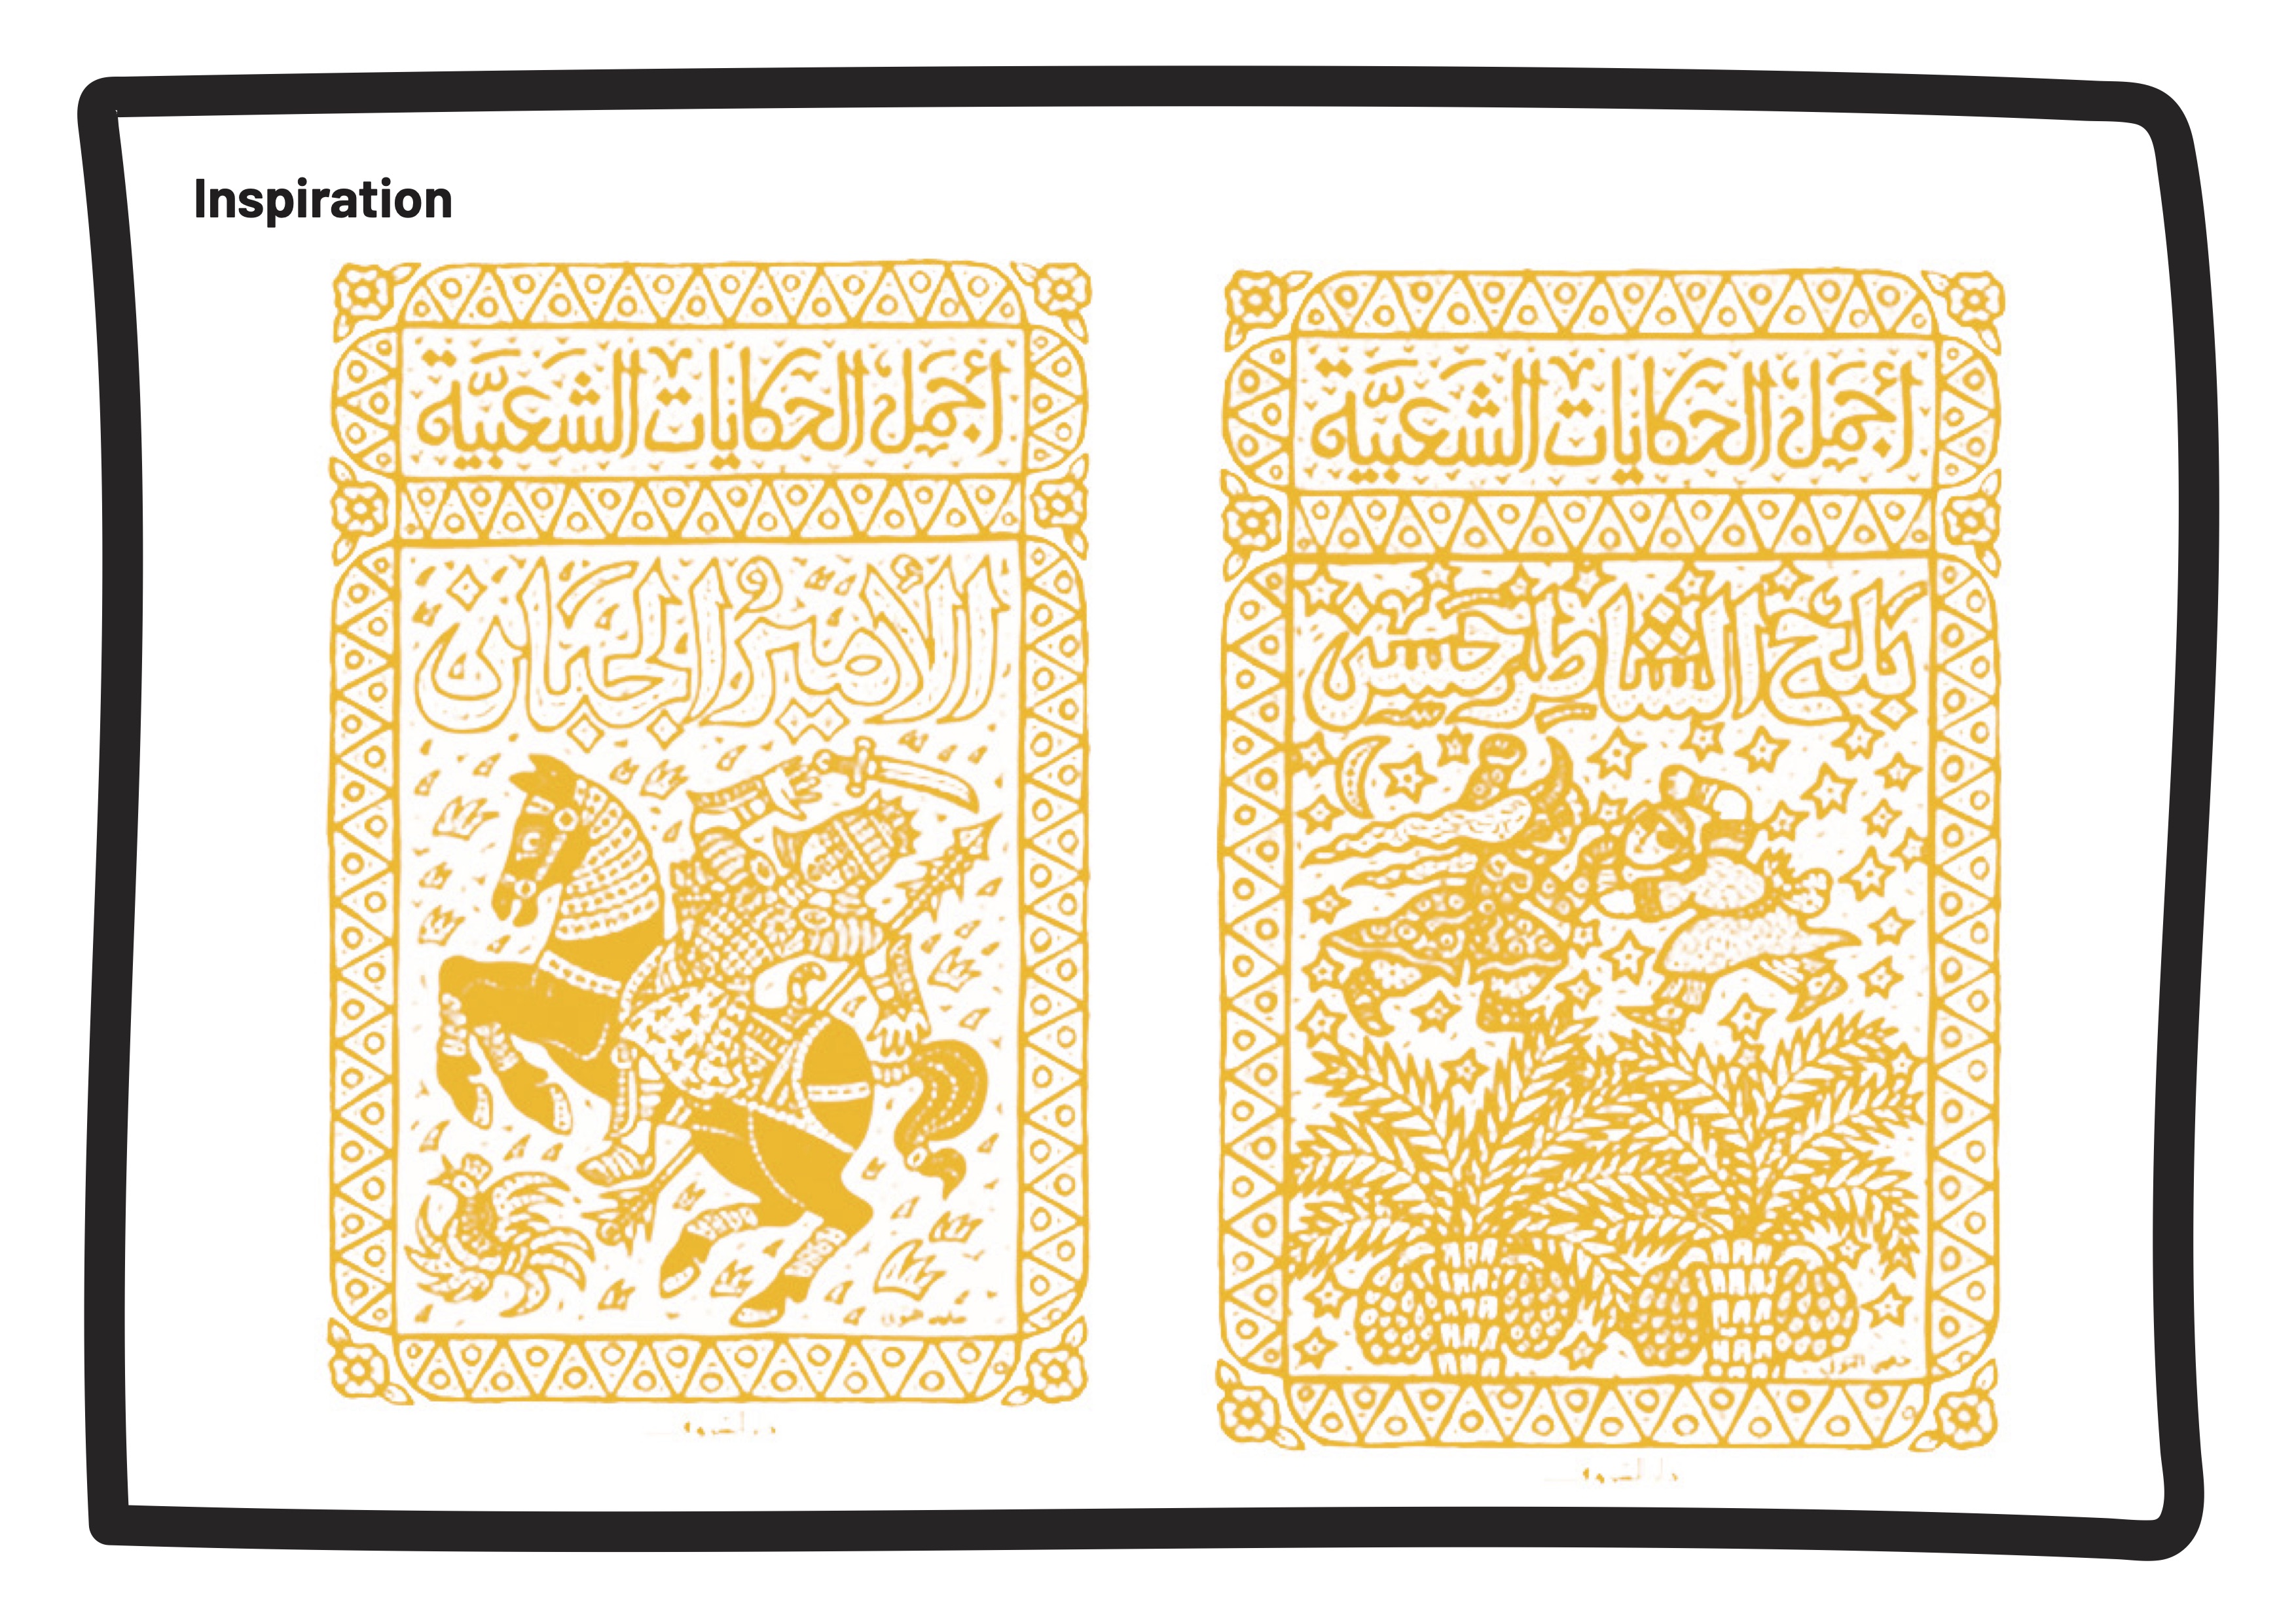 Inspiration
أجمل الحكايات الشعبيّة
الأمير الجبان
أجمل الحكايات الشعبيّة
بلح الشاطر حسن